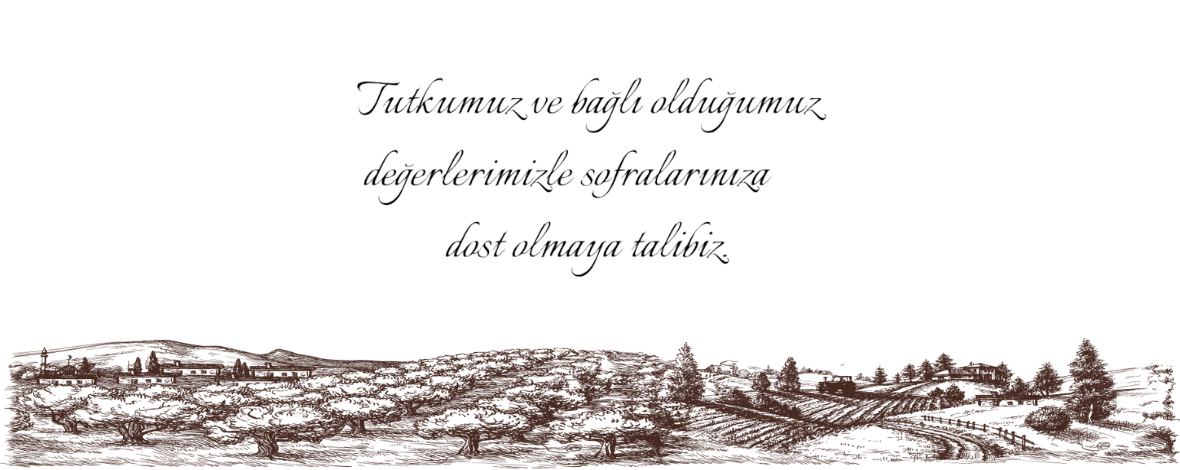 Tutkumuz ve bağlı olduğumuz
değerlerimizle sofralarınıza
dost olmaya talibiz.